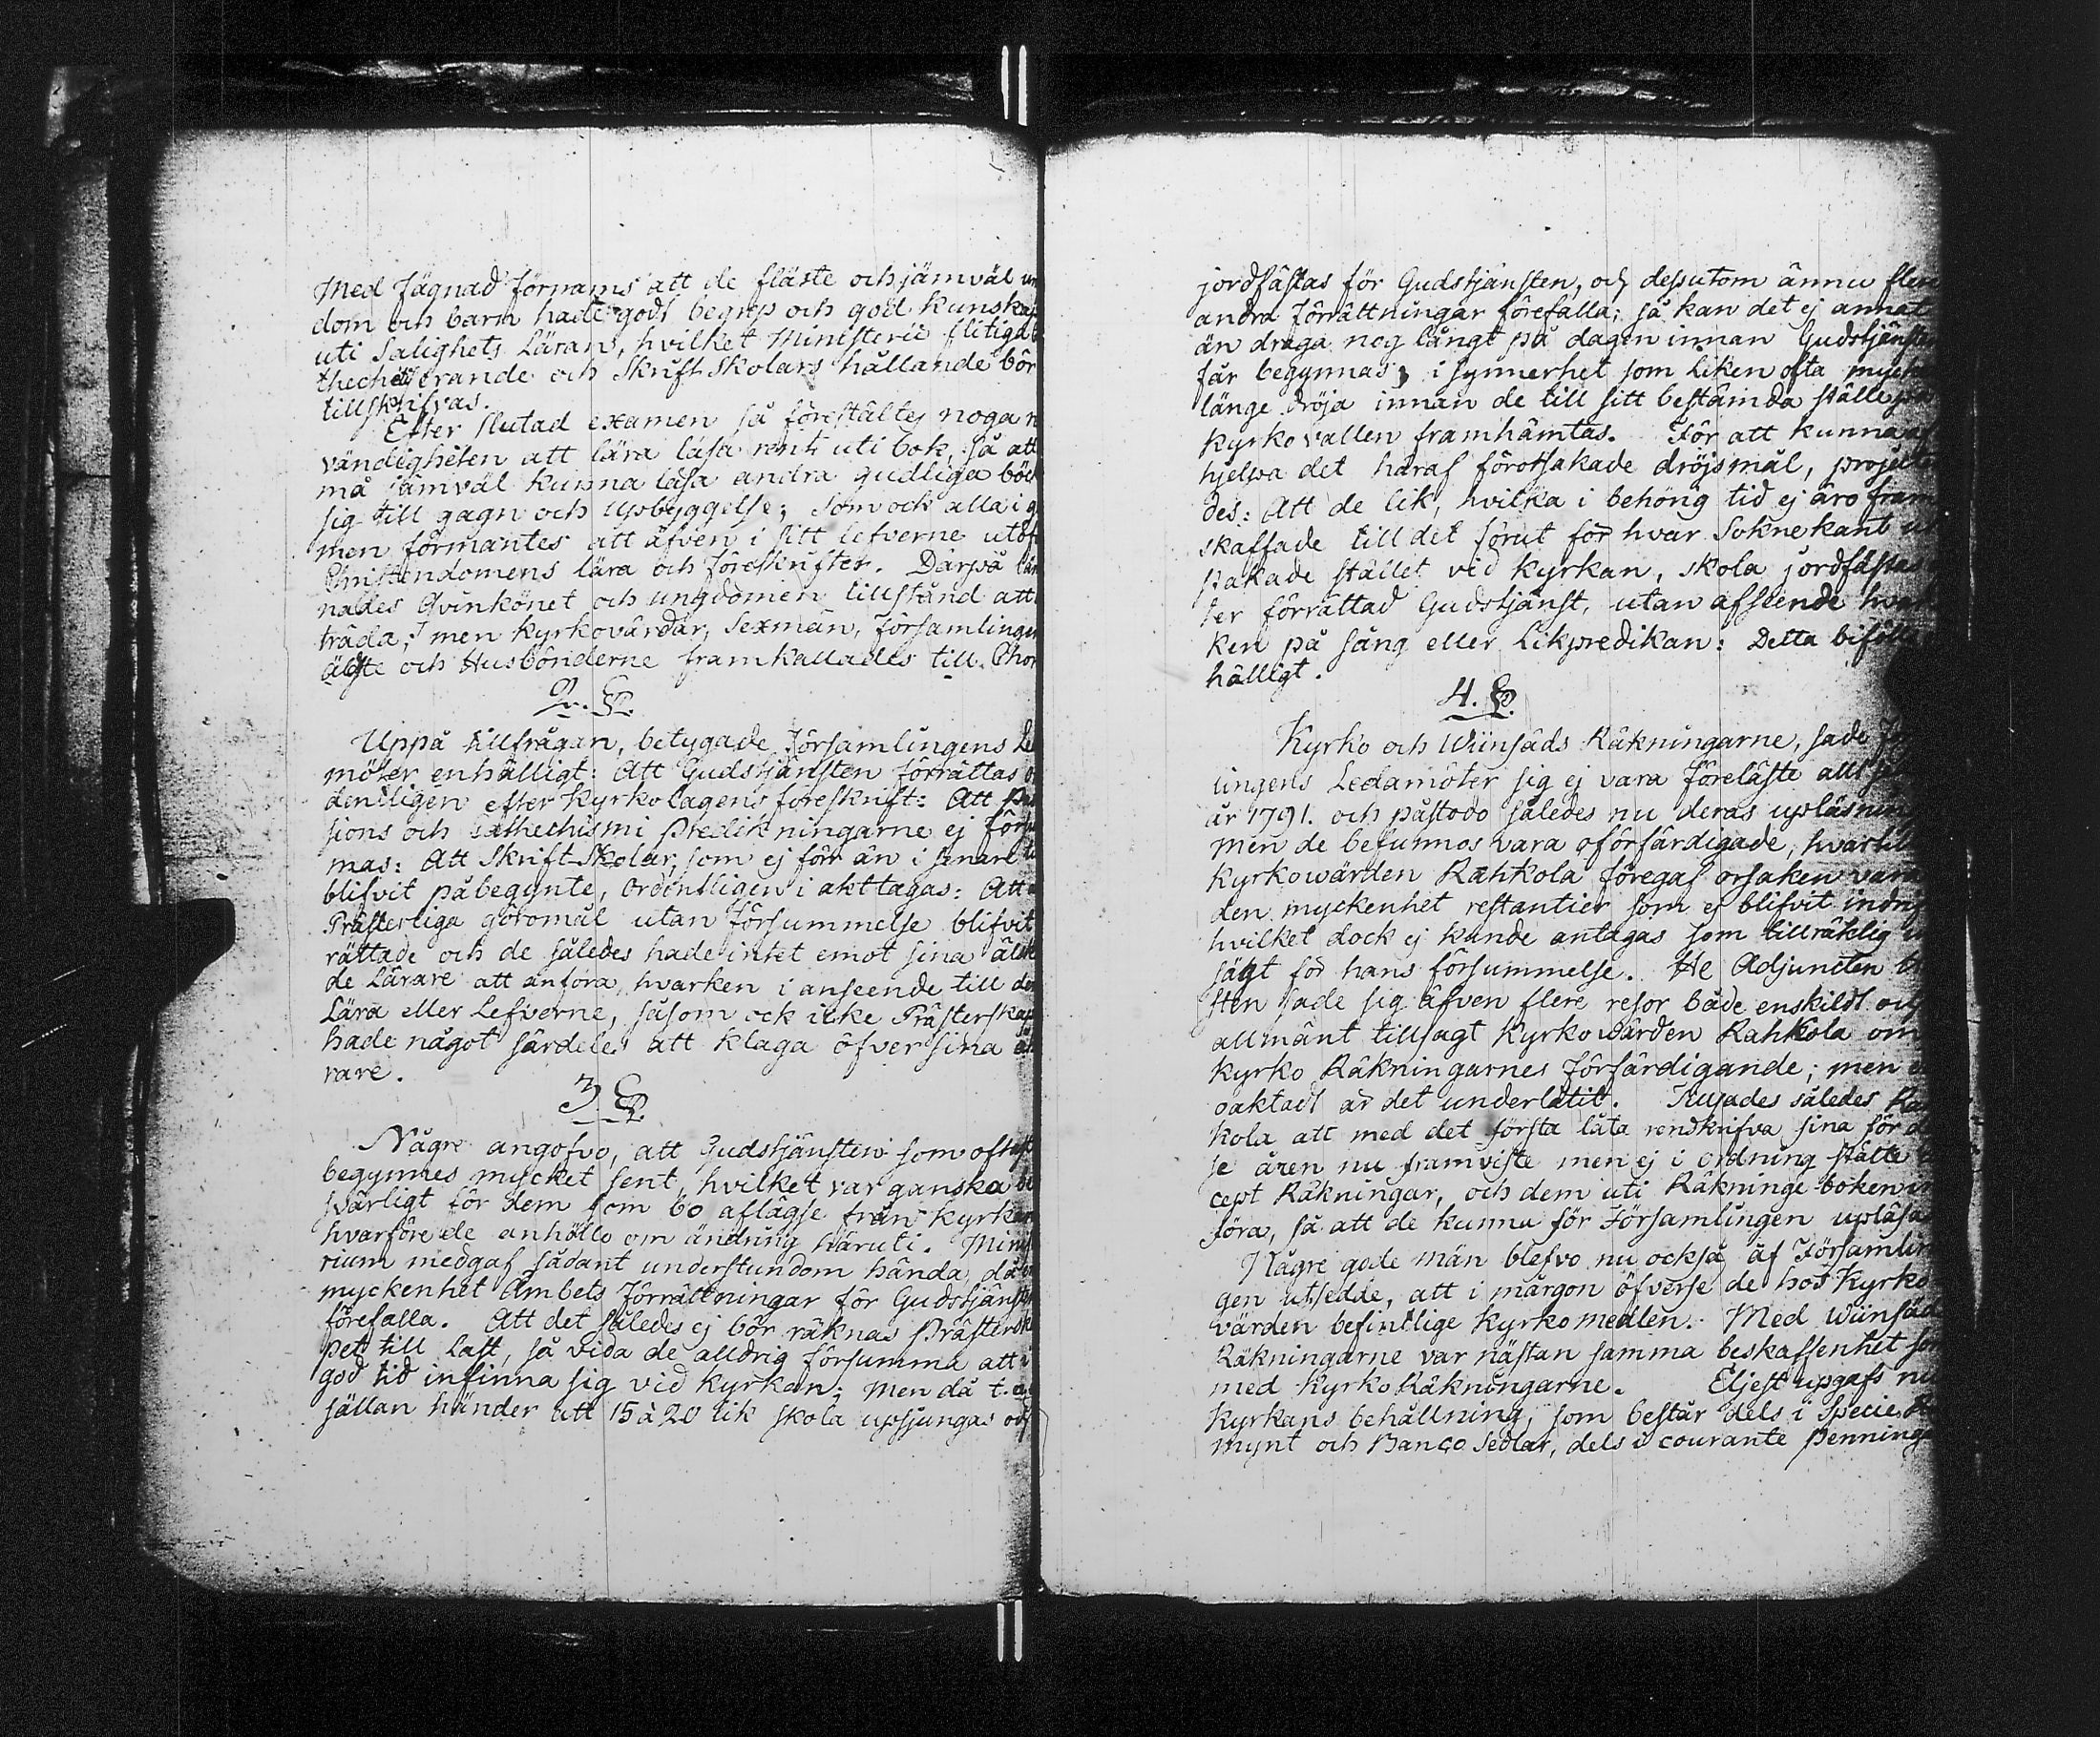 Med Fägnad förnams att de fläste och jämväl un
dom och barn hade godt begrep och god kunskap
uti Salighets Läran, hvilket Ministerii flitiga
thechiserande och Skrift Skolars hållande bör
tillskrifvas.
Efter slutad examen så förestältes noga n
vändigheten att lära läsa rent uti bok, så att
må jämväl kunna läsa andra gudliga böck
sig till gagn och upbyggelse; Som ock alla i g
men förmantes att äfven i sitt lefverne utöf
Christendomens lära och föreskrifter. Därpå läm
nades Qvinkönet och ungdomen tillstånd att
träda; men kyrkovärdar, Sexmän, Församlingen
äldste och Husbönderne framkallades till Chor
2. §.
Uppå tillfrågan, betygade Församlingens Le
möter enhälligt: Att Gudstjänsten förrättas or
dentligen efter Kyrkolagens föreskrift: Att Pas
sions och Cathechismi Predikningarne ej försu
mas: Att Skrift-Skolar, som ej för än i senare ti
blifvit påbegynte, ordentligen i akttagas: Att
Prästerliga göromål utan försummelse blifvit
rättade och de således hade intet emot sina älsk
de Lärare att anföra, hvarken i anseende till de
Lära eller Lefverne, såsom ock icke Prästerskap
hade något särdeles att klaga öfver sina åh
rare.
3. §.
Någre angofvo, att Gudstjänsten som oftast
begynnes mycket sent, hvilket var ganska be
svärligt för dem som bo aflägse från kyrkan
hvarföre de anhöllo om ändring häruti. Minist
rium medgaf sådant understundom hända, då
myckenhet Ämbets Förrättningar för Gudstjänsten
förefalla. Att det således ej bör räknas Prästersk
pet till last, så vida de alldrig försumma att i
god tid infinna sig vid kyrkan; Men då t. ej
sällan händer att 15 à 20 lik skola upsjungas och
jordfästas för Gudstjänsten, och dessutom ännu flere
andra förrättningar förefalla; så kan det ej annat
än draga nog långt på dagen innan Gudstjänsten
får begynnas; i synnerhet som Liken ofta mycket
länge dröja innan de till sitt bestämda ställe på
Kyrko vallen framhämtas. För att kunna af
hjelpa det häraf förorsakade dröjsmål, projecte
des: Att de lik, hvilka i behörig tid ej äro fram
skaffade till det förut för hvar Soknekant ut
stakade stället vid kyrkan, skola jordfästas
ter förrättad Gudstjänst, utan afseende hvar
ken på sång eller Likpredikan: Detta biföll
hälligt.
4. §.
Kyrko och Wiinsäds Räkningarne, sade För
lingens Ledamöter sig ej vara föreläste allt se
år 1791. och påstodo således nu deras upläsning
men de befunnos vara oförfärdigade, hvartil
kyrkowärden Rahkola föregaf orsaken vara
den myckenhet restantier som ej blifvit indri
hvilket dock ej kunde antagas som tillräklig u
säkt för hans försummelse. He Adjuncten
sten sade sig äfven flere resor både enskildt och
allmänt tillsagt Kyrkowärden Rahkola om
Kyrko Räkningarnes förfärdigande; men
oaktadt är det underlåtit. Rujades således Rah
kola att med det första låta renskrifva sina för de
se åren nu framviste men ej i ordning stälte
cept Räkningar, och dem uti Räkninge boken in
föra, så att de kunna för Församlingen upläsas
Någre gode män blefvo nu också af Församlin
gen utsedde, att i mårgon öfverse de hos Kyrko
värden befintlige Kyrkomedlen. Med Wiinsäds
Räkningarne var nästan samma beskaffenhet som
med Kyrko Räkningarne. Eljest upgafs nu
Kyrkans behållning, som består dels i Specie
mynt och Banco Sedlar, dels i courante Penninga